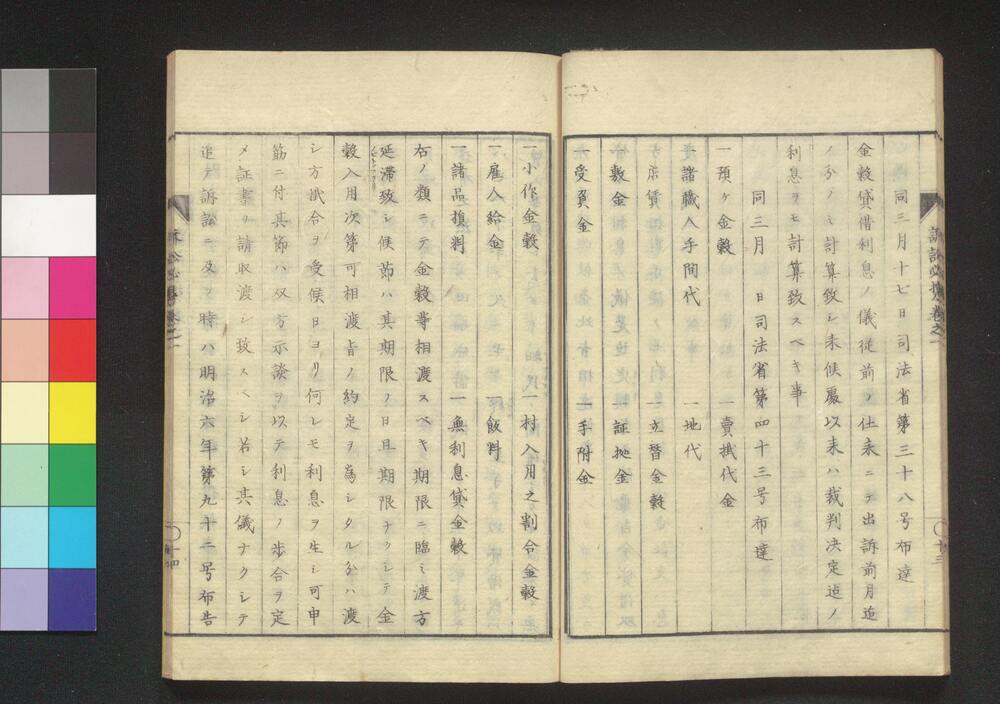 同三月十七日司法省第三十八号布達
金穀貸借利息ノ儀従前ノ仕来ニテ出訴前月迄
ノ分ノミ計算致シ来候處以来ハ裁判決定迄ノ
利息ヲモ計算致スベキ事
同三月　日司法省第四十三号布達
一預ケ金穀　一賣掛代金
一諸職人手間代　一地代
一店賃　一立替金穀
一敷金　一証拠金
一受負金　一手附金
訴訟必携巻之一
十三
一小作金穀　一村入用之割合金穀
一雇人給金　一飯料
一諸品損料　一無利息貸金穀
右ノ類ニテ金穀等相渡スベキ期限ニ臨ミ渡方
延滞致シ候節ハ其期限ノ日且期限ナクシテ金
穀入用次第可相渡旨ノ約定ヲ為シタル分ハ渡
シ方掛合ヲ受候日ヨリ何レモ利息ヲ生シ可申
筋ニ付其節ハ双方示談ヲ以テ利息ノ歩合ヲ定
メ証書ヲ請取渡シ致スベシ若シ其儀ナクシテ
追テ訴訟ニ及フ時ハ明治六年第九十二号布告
十四